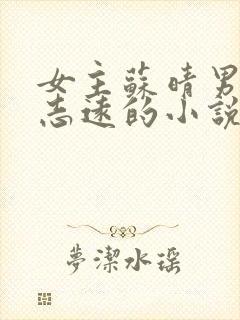 女主蘇晴男
志遠的小說
夢潔水瑶